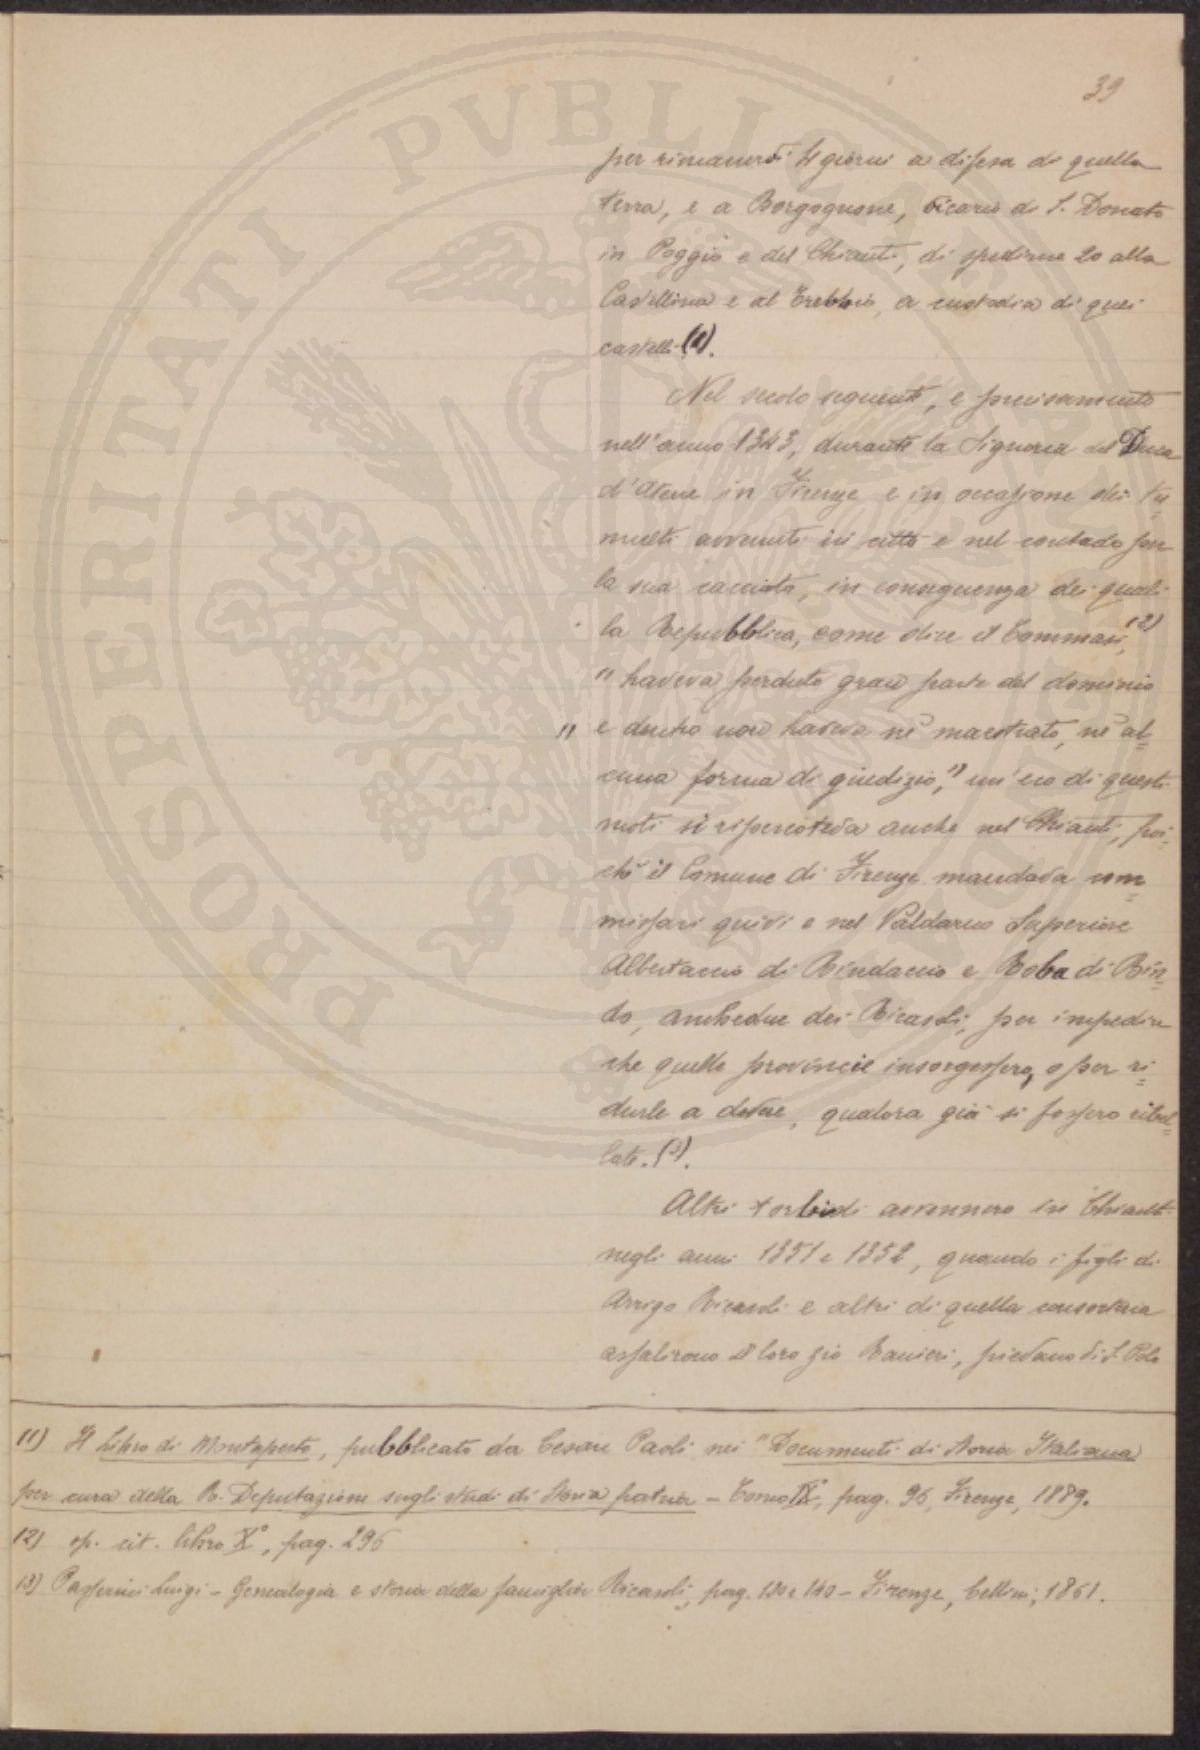 39
per rimanervi 4 giorni a difesa di quella
terra, e a Borgognone, vicario di S. Donato
in Poggio e del Chianti, di spedirne 20 alla
Castellina e al Trebbio, a custodia di quei
castelli (1).
Nel secolo seguente, e precisamente
nell'anno 1343, durante la Signoria del Duca
d'Atene in Firenze e in occasione dei tu=
multi avvenuti in città e nel contado per
la sua cacciata, in conseguenza dei quali
la Repubblica, come dice il Tommasi, (2)
" haveva perduto gran parte del dominio
" e dentro non haveva nè maestrato, nè al=
cuna forma di giudizio," un'eco di questi
moti si ripercoteva anche nel Chianti, poi=
chè il Comune di Firenze mandava com=
missari quivi e nel Valdarno Superiore
Albertaccio di Bindaccio e Boba di Bin=
do, ambedue dei Ricasoli, per impedire
che quelle provincie insorgessero, o per ri=
durle a dovere, qualora già si fossero ribel=
late. (3).
Altri torbidi avvennero in Chianti
negli anni 1351 e 1352, quando i figli di
Arrigo Ricasoli e altri di quella consorteria
assalirono il loro zio Ranieri, pievano di S. Polo
(1) Il Libro di Montaperti, pubblicato da Cesare Paoli nei "Documenti di Storia Italiana
per cura della R. Deputazione sugli studi di Storia patria - Tomo IX, pag. 96, Firenze, 1889.
(2) op. cit. libro X°, pag. 296
(3) Passerini Luigi - Genealogia e storia della famiglia Ricasoli, pag. 120 e 140 - Firenze, Cellini, 1861.
PROSPERITATI PVBLICAE